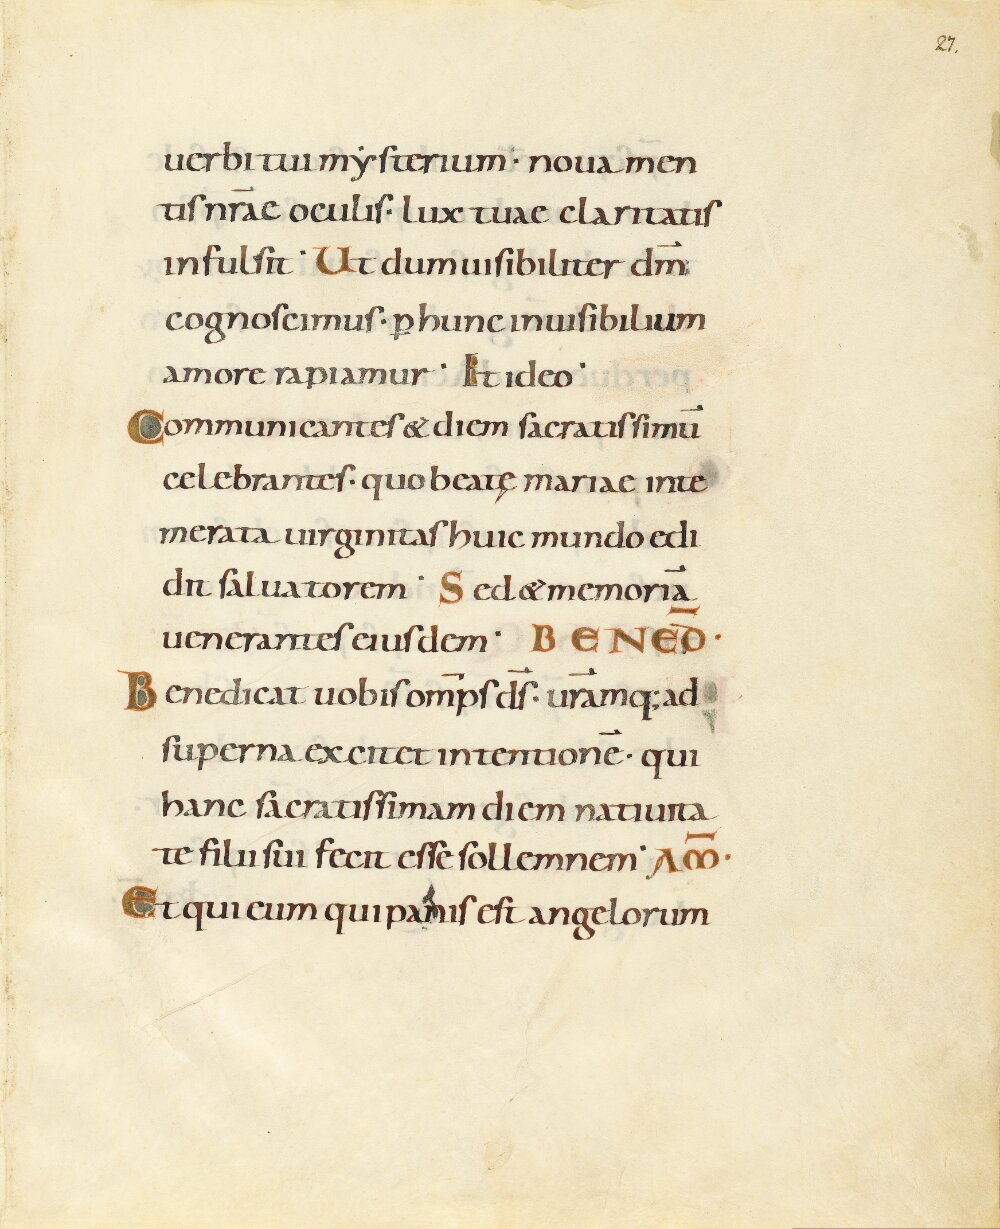 27.
uerbi tui mẏsterium · noua men
tis nr̄ae oculis · lux tuae claritatis
infulsit · Ut dum uisibiliter dm̄
cognoscimus · ꝑ hunc inuisibilium
amore rapiamur · Et ideo ·
Communicantes & diem sacratissimū
celebrantes · quo beatę mariae inte
merata uirginitas huic mundo edi
dit saluatorem · Sed & memoriā
uenerantes eiusdem · BENED̄ ·
Benedicat uobis om̄ps d̄s · ur̄amq; ad
superna excitet intentionē · qui
hanc sacratissimam diem natiuita
te filii sui fecit esse sollemnem · AM̄ ·
Et qui eum qui panis est angelorum